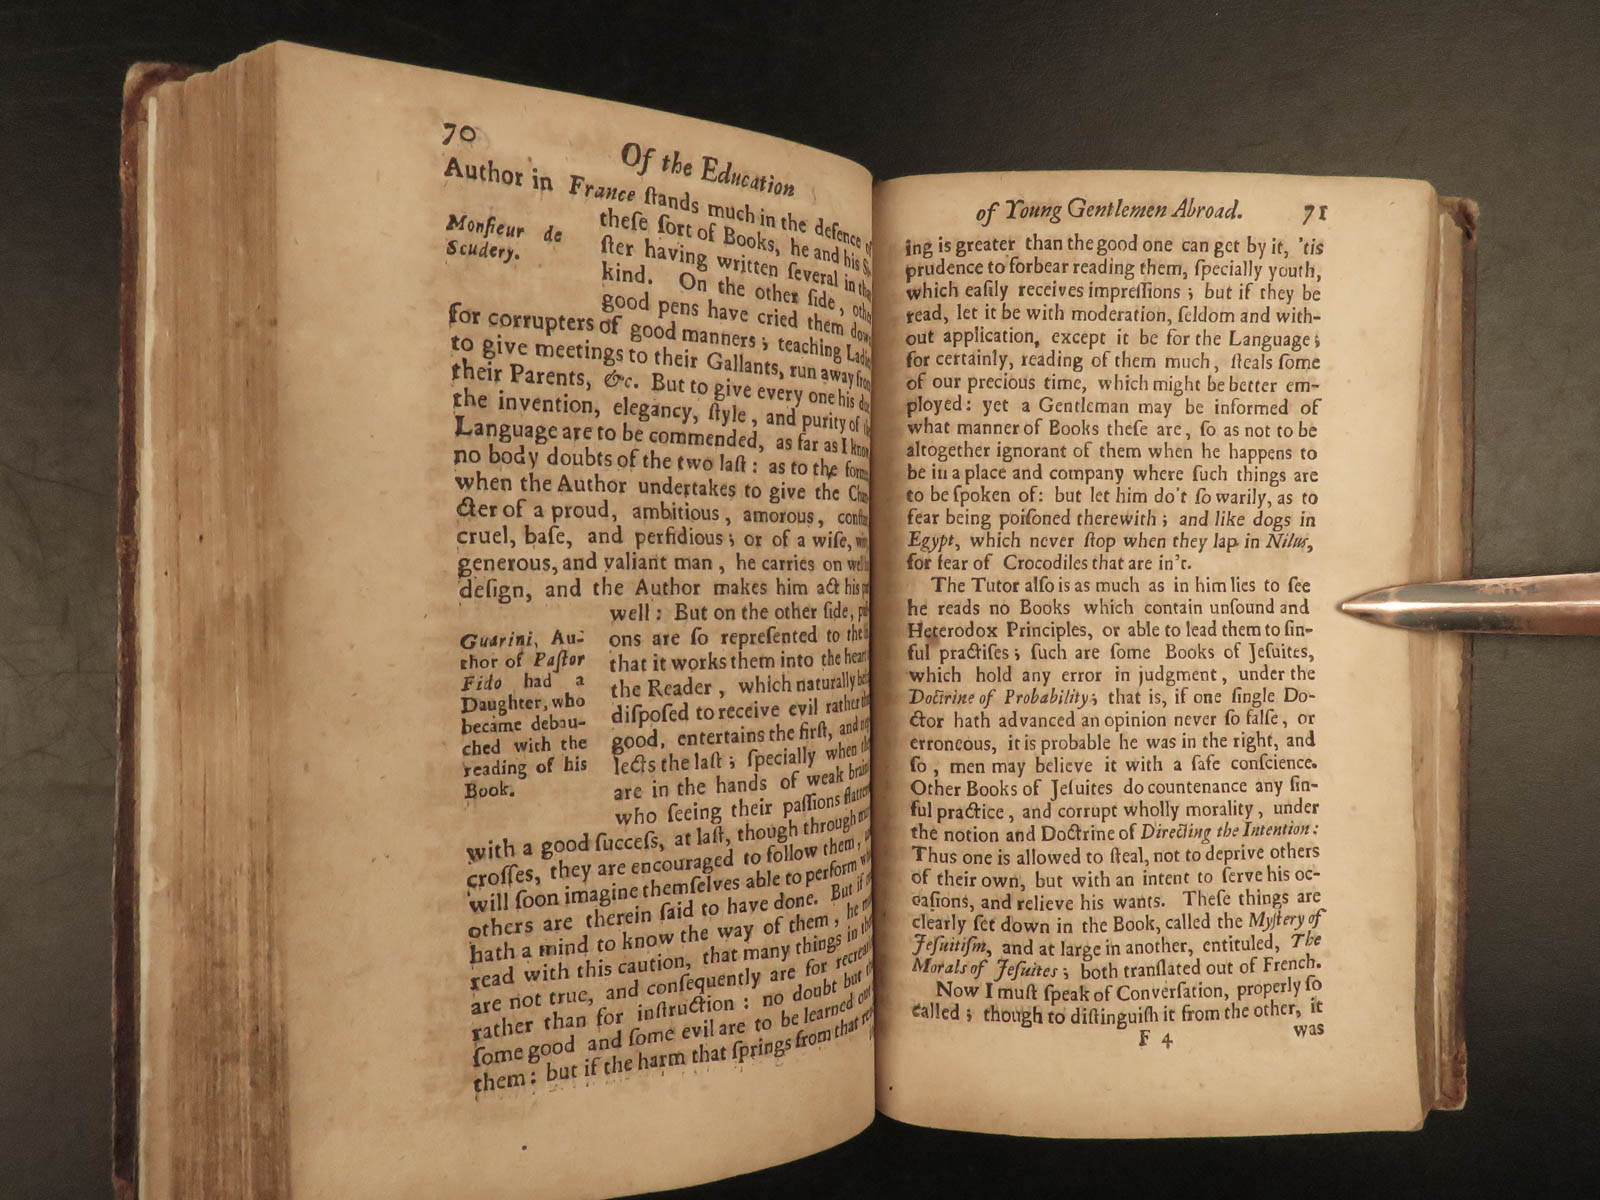 70
Of the Education
Author in France ſtands much in the defence
Monſieur de
Scudery.
theſe ſort of Books, he and his
ſter having written ſeveral in
kind. On the other ſide,
good pens have cried them
for corrupters of good manners; teaching
to give meetings to their Gallants, run away
their Parents, &c. But to give every one his
the invention, elegancy, ſtyle, and purity of
Language are to be commended, as far as I know
no body doubts of the two laſt: as to the
when the Author undertakes to give the
cter of a proud, ambitious, amorous,
cruel, baſe, and perfidious; or of a wiſe,
generous, and valiant man, he carries on well
deſign, and the Author makes him act his
well: But on the other ſide,
Guarini, Au-
thor of Paſtor
Fido had a
Daughter, who
became debau-
ched with the
reading of his
Book.
ons are ſo repreſented to the
that it works them into the heart
the Reader, which naturally
diſpoſed to receive evil rather
good, entertains the firſt, and
lects the laſt; ſpecially when
are in the hands of weak
who ſeeing their paſſions
with a good ſucceſs, at laſt, though through
croſſes, they are encouraged to follow them,
will ſoon imagine themſelves able to perform
others are therein ſaid to have done. But if
hath a mind to know the way of them, he
read with this caution, that many things in
are not true, and conſequently are for
rather than for inſtruction: no doubt but
ſome good and ſome evil are to be learned
them: but if the harm that ſprings from that
of Young Gentlemen Abroad. 71
ing is greater than the good one can get by it, 'tis
prudence to forbear reading them, ſpecially youth,
which eaſily receives impreſſions; but if they be
read, let it be with moderation, ſeldom and with-
out application, except it be for the Language;
for certainly, reading of them much, ſteals ſome
of our precious time, which might be better em-
ployed: yet a Gentleman may be informed of
what manner of Books theſe are, ſo as not to be
altogether ignorant of them when he happens to
be in a place and company where ſuch things are
to be ſpoken of: but let him do't ſo warily, as to
fear being poiſoned therewith; and like dogs in
Egypt, which never ſtop when they lap in Nilus,
for fear of Crocodiles that are in't.
The Tutor alſo is as much as in him lies to ſee
he reads no Books which contain unſound and
Heterodox Principles, or able to lead them to ſin-
ful practiſes; ſuch are ſome Books of Jeſuites,
which hold any error in judgment, under the
Doctrine of Probability; that is, if one ſingle Do-
ctor hath advanced an opinion never ſo falſe, or
erroneous, it is probable he was in the right, and
ſo, men may believe it with a ſafe conſcience.
Other Books of Jeſuites do countenance any ſin-
ful practice, and corrupt wholly morality, under
the notion and Doctrine of Directing the Intention:
Thus one is allowed to ſteal, not to deprive others
of their own, but with an intent to ſerve his oc-
caſions, and relieve his wants. Theſe things are
clearly ſet down in the Book, called the Myſtery of
Jeſuitiſm, and at large in another, entituled, The
Morals of Jeſuites; both tranſlated out of French.
Now I muſt ſpeak of Converſation, properly ſo
called; though to diſtinguiſh it from the other, it
F 4
was